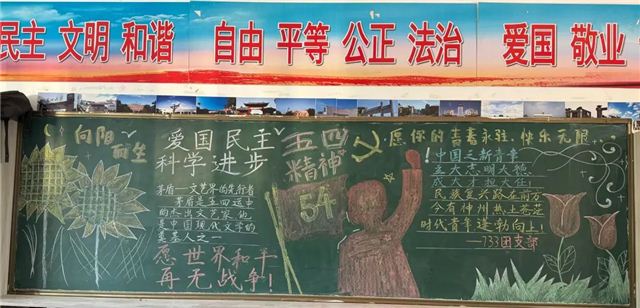 民主 文明 和谐
自由 平等 公正 法治
爱国 敬业
向阳
而生
爱国民主
科学进步
茅盾——文艺界的先行者
茅盾是五四运中
的杰出文艺家,他
是中国现代文学的
奠基人之一
愿世界和平
再无战争!
五四
精神
54
愿你的青春永驻,快乐无限...
!中国之新青年
立大志明大德
成大才担大任!
民族复兴路在前方
今有神州热土苍茫
时代青年逢勃向上!
——733团支部